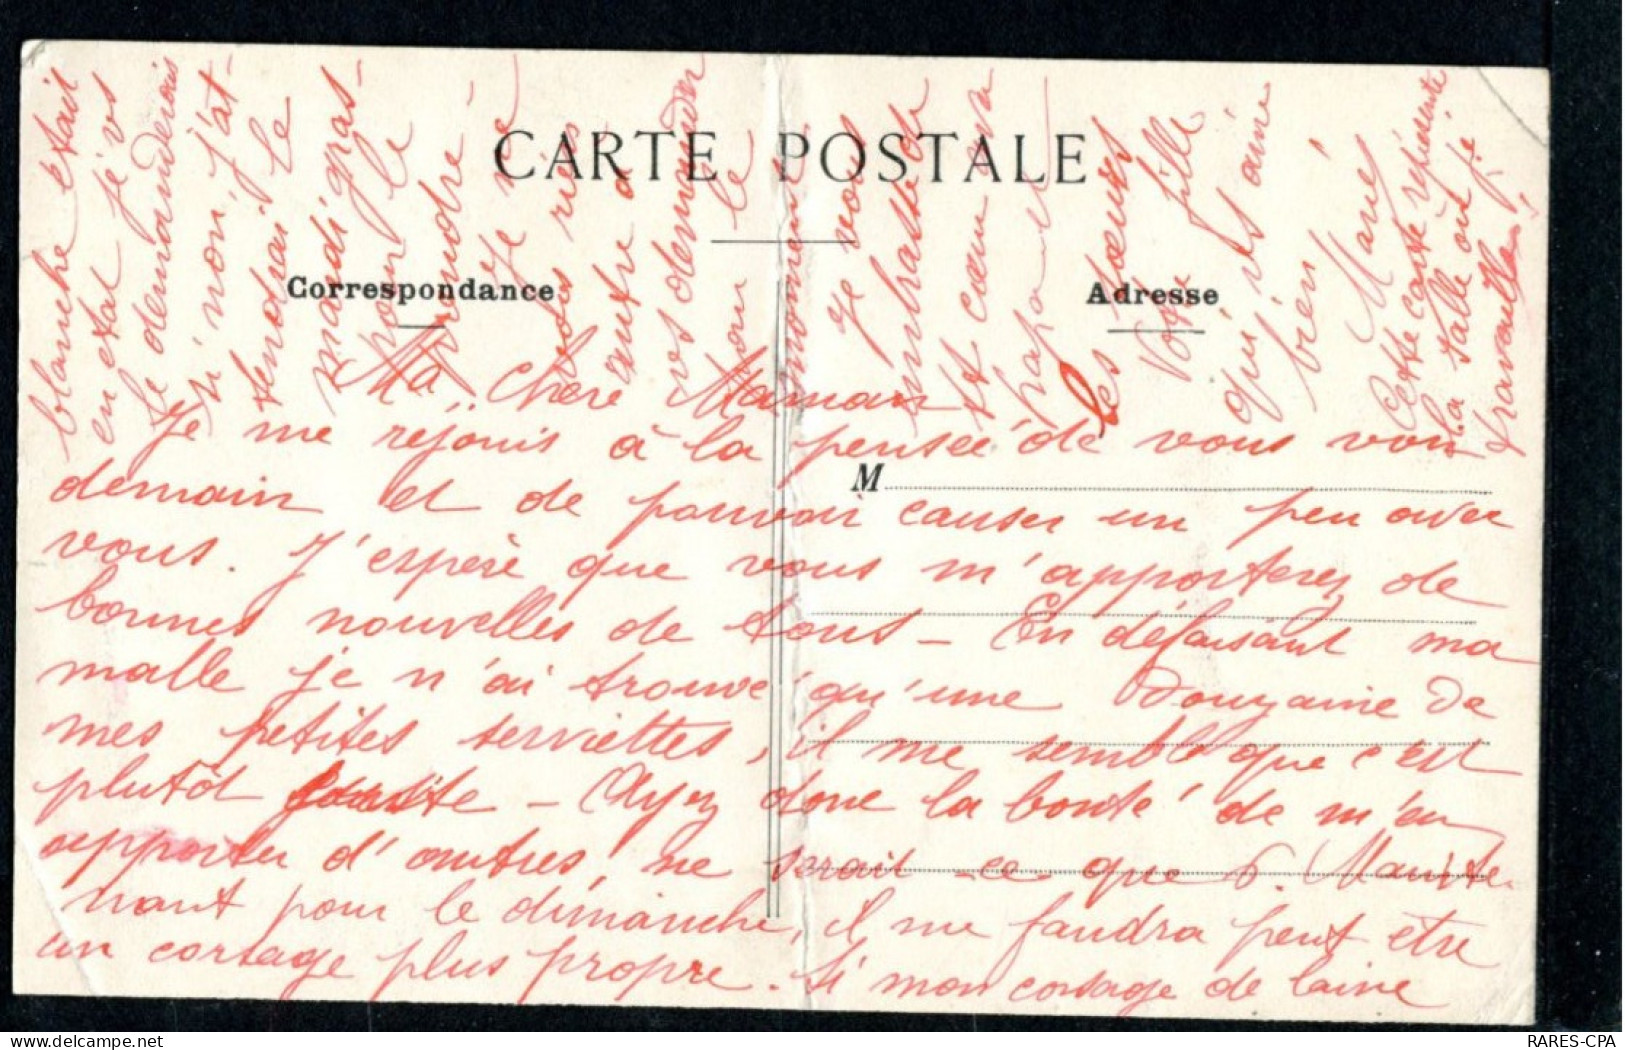 CARTE POSTALE
Correspondance
Adresse
M
Ma chère Maman
Je me réjouis à la pensée de vous voir
demain et de pouvoir causer un peu avec
vous. J'espère que vous m'apporterez de
bonnes nouvelles de tous - En défaisant ma
malle je n'ai trouvé qu'une douzaine de
mes petites serviettes, il me semble que c'est
plutôt juste - Ayez donc la bonté de m'en
apporter d'autres, ne serait-ce que 6. Mainte-
nant pour le dimanche, il me faudra peut être
un corsage plus propre. Si mon corsage de laine
blanche était
en état je vs
le demanderais
si non, j'at-
tendrai le
mardi gras
pour le
Je ne
vois rien
autre à
vs demander
pour le
moment
Je vous
embrasse de
tt cœur ainsi
papa et
les sœurs
Votre fille
qui vs aime
bien
Marie
Cette carte représente
la salle où je
travaille.
RARES-CPA